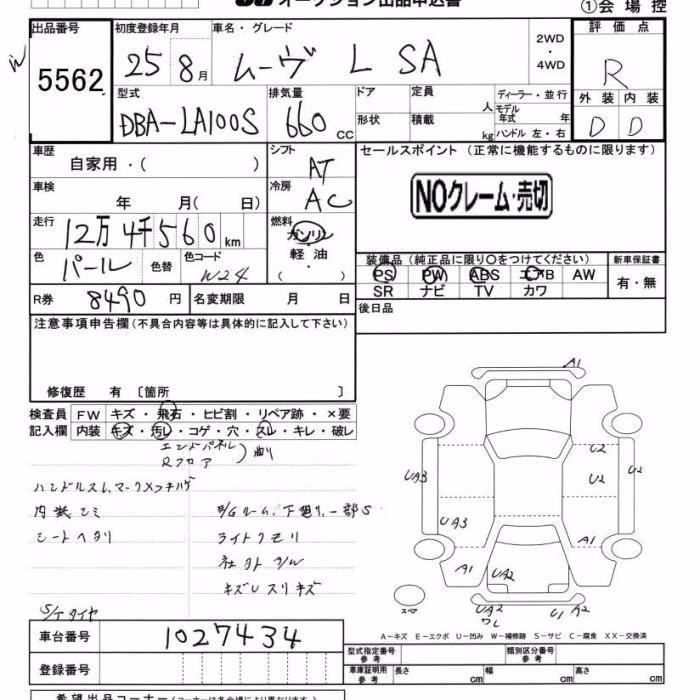 オークション出品申込書
①会場控
出品番号
5562
初度登録年月
25 8月
車名・グレード
ムーヴ L SA
2WD
・
4WD
評価点
R
型式
DBA-LA100S
排気量
660 cc
ドア
定員
人
形状
積載
kg
ディーラー・並行
モデル年式 年
ハンドル 左・右
外装 内装
D D
車歴
自家用・( )
シフト
AT
車検
年 月( 日)
冷房
AC
走行
12万4千560km
燃料
ガソリン
軽油
( )
色
パール
色替
色コード
W24
R券
8490円
名変期限 月 日
セールスポイント(正常に機能するものに限ります)
NOクレーム・売切
装備品(純正品に限り○をつけてください)
PS PW ABS エアB AW
SR ナビ TV カワ
新車保証書
有・無
後日品
注意事項申告欄(不具合内容等は具体的に記入して下さい)
修復歴 有〔箇所 〕
検査員 FW キズ・飛石・ヒビ割・リペア跡・×要
記入欄 内装 キズ・汚レ・コゲ・穴・スレ・キレ・破レ
エンドパネル
Rフロア
曲リ
ハンドルスレ、マークメッキハゲ
内装シミ
シートヘタリ
E/Gルーム、下廻リ、一部S
ライトクモリ
社外F/W
キズUスリキズ
S/Tタイヤ
A1
U2
U2
U2
UA3
UA3
A1
A1
UA2
スペア
UA2
ワレ
U1 A2
A−キズ E−エクボ U−凹み W−補修跡 S−サビ C−腐食 XX−交換済
車台番号
1027434
登録番号
型式指定番号
参考
類別区分番号
参考
車庫証明用
参考
長さ cm
幅 cm
高さ cm
希望出品コーナー